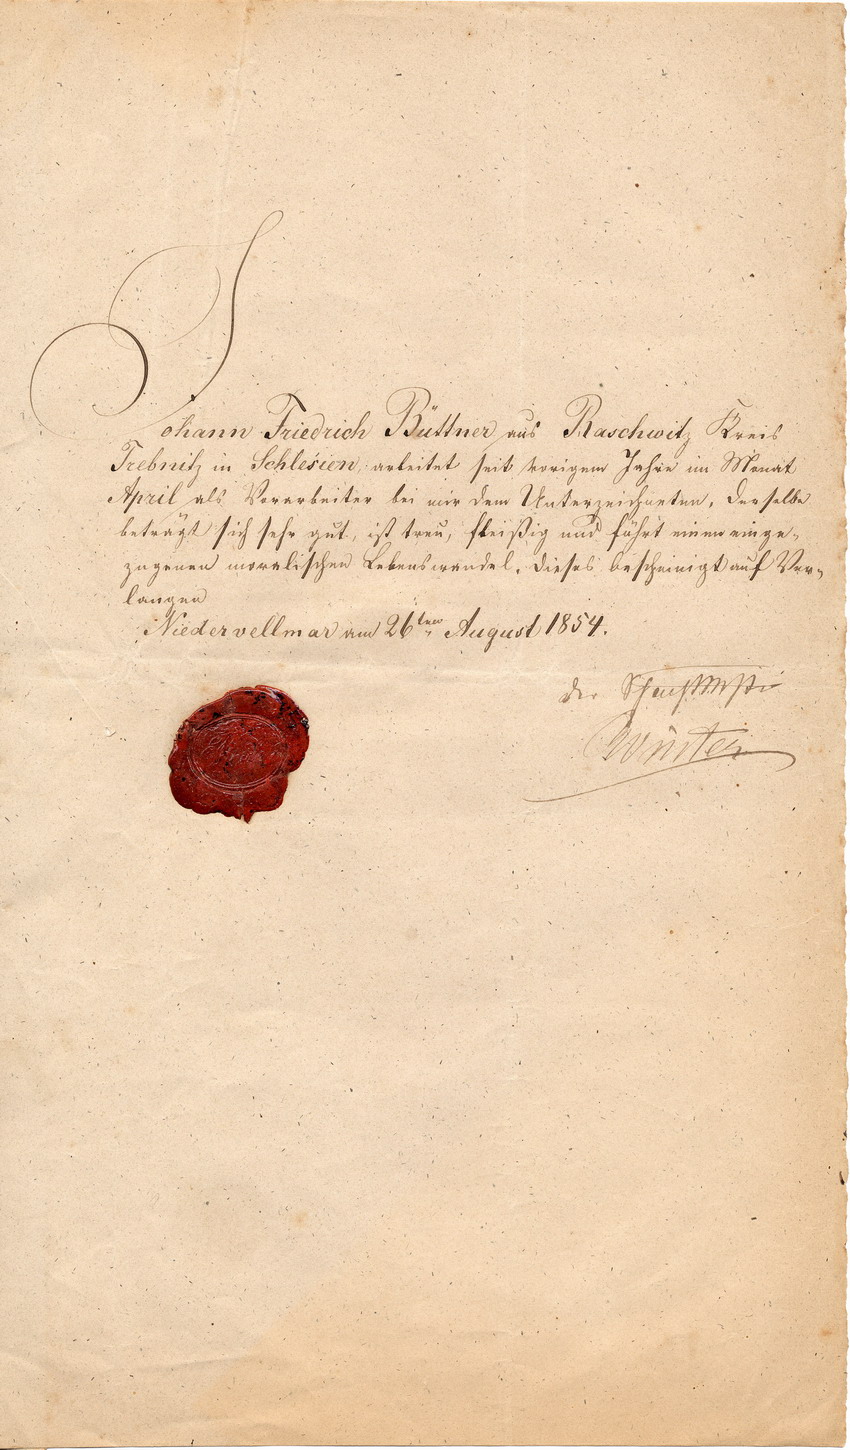 Johann Friedrich Büttner aus Raschwitz Kreis
Trebnitz in Schlesien, arbeitet seit vorigem Jahre im Monat
April als Vorarbeiter bei mir dem Unterzeichneten. Derselbe
beträgt sich sehr gut, ist treu, fleißig und führt einen einge-
zogenen moralischen Lebenswandel. Dieses bescheinigt auf Ver-
langen
Niedervellmar am 26ten August 1854.
der